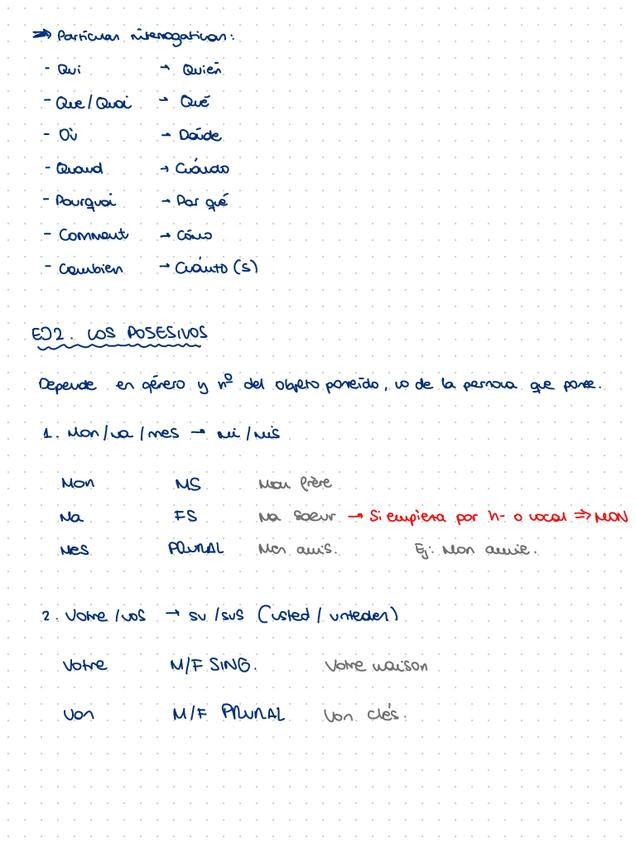 ⇒ Partículas interrogativas:
- Qui → Quién
- Que/Quoi → Qué
- Où → Dónde
- Quand → Cuándo
- Pourquoi → Por qué
- Comment → Cómo
- Combien → Cuánto (s)
EJ2. LOS POSESIVOS
Depende en género y nº del objeto poseído, no de la persona que posee.
1. Mon/ma/mes → mi/mis
Mon MS Mon frère
Ma FS Ma soeur → Si empieza por h- o vocal ⇒ MON
Mes PLURAL Mes amis. Ej: Mon amie.
2. Votre/vos → su/sus (usted/ustedes)
Votre M/F SING. Votre maison
Vos M/F PLURAL Vos clés.